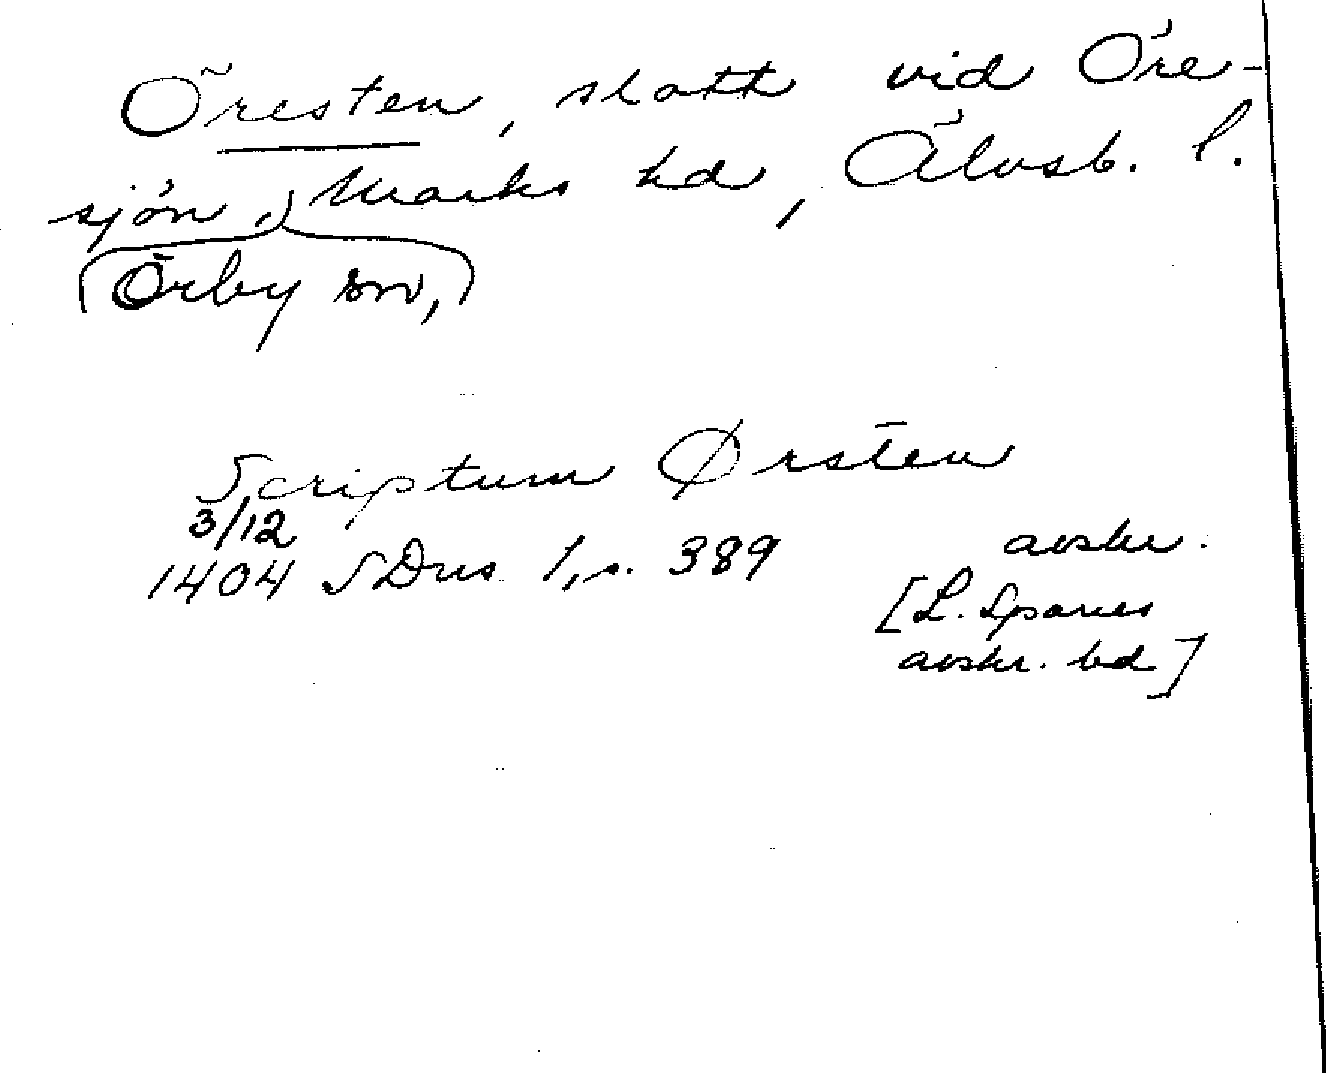 Öresten, slott vid Öre-
sjön, Marks hd, Älvsb. l.
(Örby sn,)
Scriptum Ørsten
3/12
1404 SDns 1, s. 389 avskr.
[L. Sparres
avskr. bd]